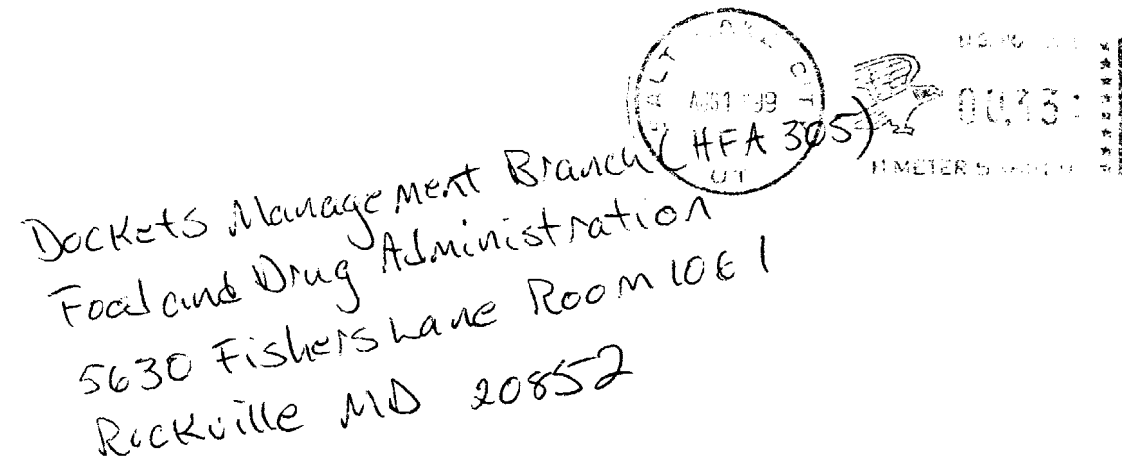 SALT LAKE CITY
UT
Dockets Management Branch (HFA 305)
Food and Drug Administration
5630 Fishers Lane Room 10E1
Rockville MD 20852